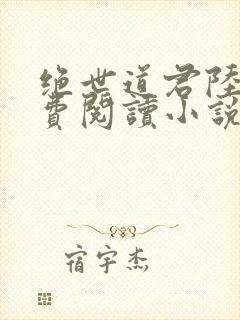 绝世道君陸
費閱讀小說
宿宇杰